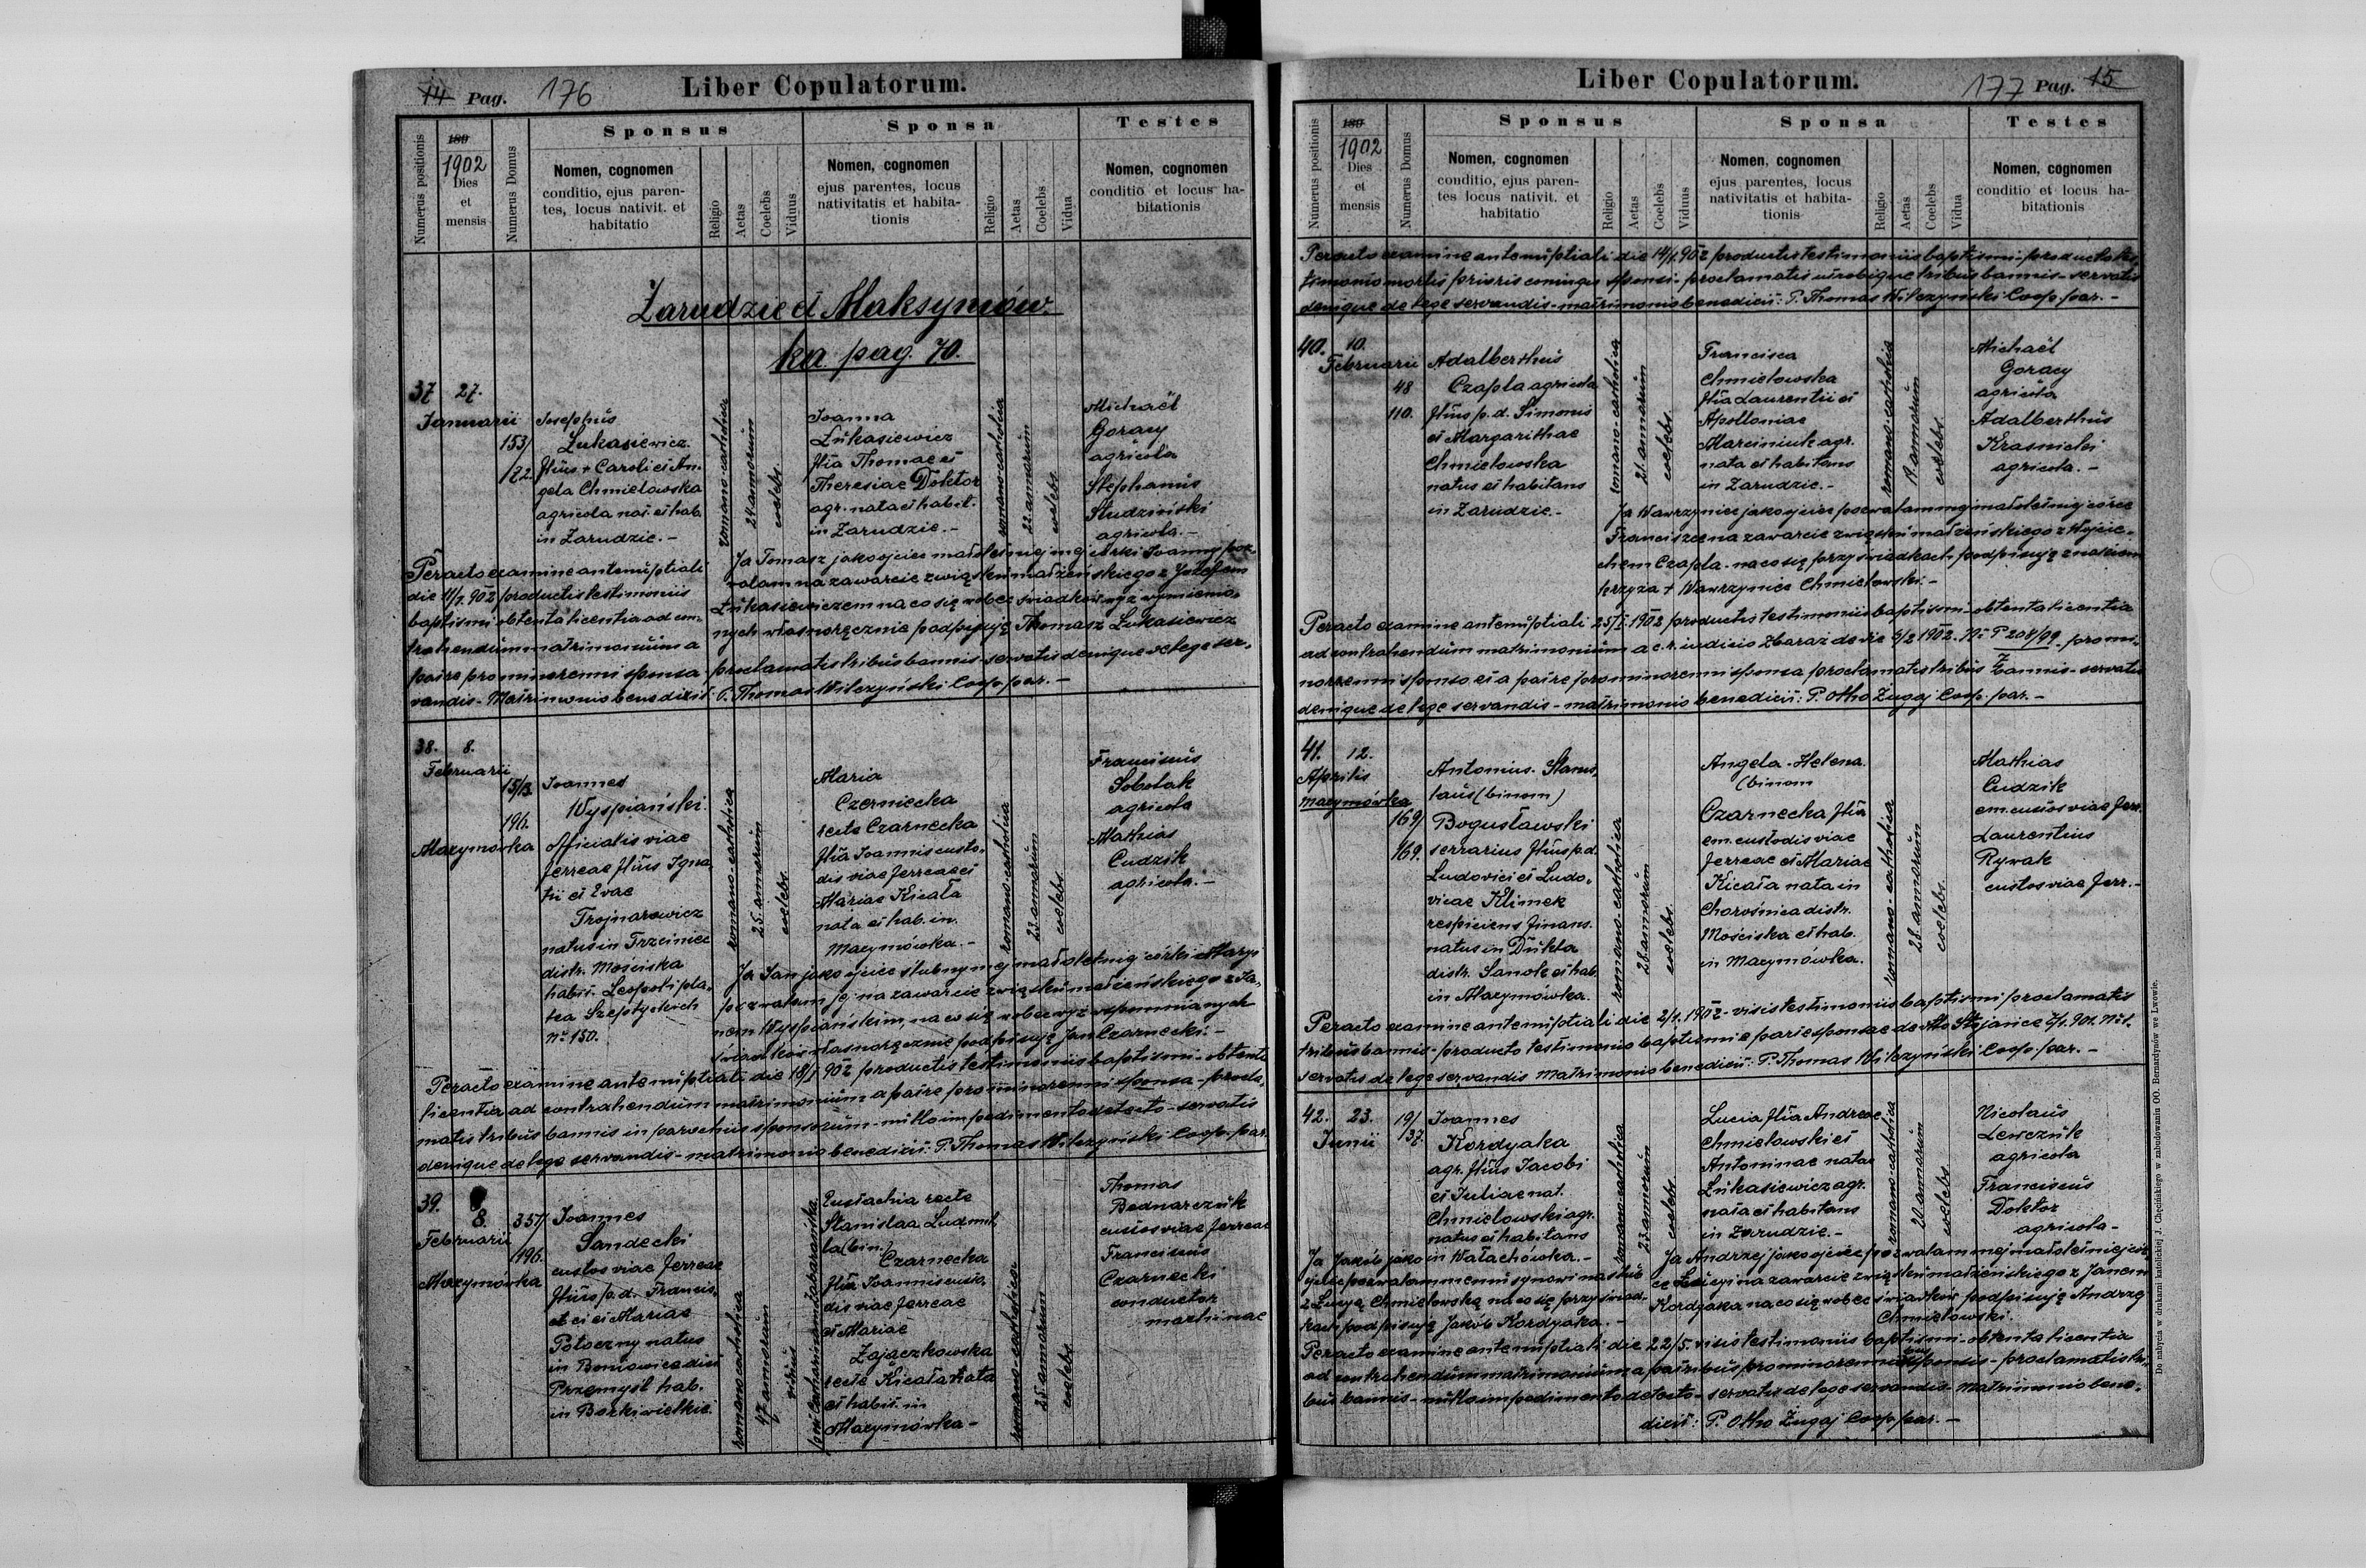 14 Pag. 176 Liber Copulatorum.
Numerus positionis
189
1902
Dies
et
mensis
Numerus Domus
Sponsus
Nomen, cognomen
conditio, ejus paren-
tes, locus nativit. et
habitatio
Religio
Aetas
Coelebs
Viduus
Sponsa
Nomen, cognomen
ejus parentes, locus
nativitatis et habita-
tionis
Religio
Aetas
Coelebs
Vidua
Testes
Nomen, cognomen
conditio et locus ha-
bitationis
Zarudzie et Maksymów-
ka pag. 70.
37 27.
Januarii
153/
122.
Josephus
Łukasiewicz
filius + Caroli et An-
gela Chmielowska
agricola nat. et hab.
in Zarudzie.-
romano-catholica
24 annorum
coelebs.
Joanna
Łukasiewicz
filia Thomae et
Theresiae Doktor
agr. nata et habit.
in Zarudzie.-
romano-catholica
22 annorum
coelebs
Michaël
Goracy
agricola
Stephanus
Studziński
agricola.-
Ja Tomasz jako ojciec małoletniej mej córki Joanny poz-
walam na zawarcie związku małżeńskiego z Józefem
Łukasiewiczem na co się wobec świadków wyż wymienio-
nych własnoręcznie podpisuję Thomasz Łukasiewicz
Peracto examine antenuptiali
die 11/1. 902 productis testimoniis
baptismi obtenta licentia ad con-
trahendum matrimonium a
patre pro minorenni sponsa - proclamatis tribus bannis - servatis denique de lege ser-
vandis - Matrimonio benedixit: P. Thomas Wilczyński Coop. par.-
38. 8.
Februarii
15/B
196.
Maxymówka
Joannes
Wyspiański
officialis viae
ferreae filius Igna-
tii et Evae
Trojnarowicz
natus in Trzcieniec
distr. Mościska
habit. Leopoli pla-
tea Szeptyckich
No 150.
romano-catholica
25 annorum
coelebs
Maria
Czerniecka
recte Czarnecka
filia Joannis custo-
dis viae ferreae et
Mariae Kicała
nata et hab. in
Maxymówka.-
romano-catholica
23 annorum
coelebs.
Franciscus
Sobolak
agricola
Mathias
Cudzik
agricola.-
Ja Jan jako ojciec ślubny mej małoletniej córki Maryi
pozwalam jej na zawarcie związku małżeńskiego z Ja-
nem Wyspiańskim, na co się wobec wyż wspomnianych
świadków własnoręcznie podpisuję Jan Czarnecki.-
Peracto examine antenuptiali die 18/1 902 productis testimoniis baptismi - obtenta
licentia ad contrahendum matrimonium a patre pro minorenni sponsa - procla-
matis tribus bannis in parochiis sponsorum - nullo impedimento detecto - servatis
denique de lege servandis - matrimonio benedixit: P. Thomas Wilczyński Coop. par.
39. 8.
Februarii
Maxymówka
357/
196.
Joannes
Sandecki
custos viae ferreae
filius p. d. Francis-
ci et Mariae
Potoczny natus
in
Przemyśl hab.
in Borki wielkie.
romano-catholica
47 annorum
viduus
Eustachia recte
Stanislaa Ludmil-
la (bin.)
Czarnecka
filia Joannis custo-
dis viae ferreae
et Mariae
Zajączkowska
recte Kicała nata
et habit. in
Maxymówka-
romano-catholica
25 annorum
coelebs.
Thomas
Bednarczuk
custos viae ferreae
Franciscus
Czarnecki
conductor
machinae
Liber Copulatorum. 177 Pag. 15
Numerus positionis
189
1902
Dies
et
mensis
Numerus Domus
Sponsus
Nomen, cognomen
conditio, ejus paren-
tes locus nativit. et
habitatio
Religio
Aetas
Coelebs
Viduus
Sponsa
Nomen, cognomen
ejus parentes, locus
nativitatis et habita-
tionis
Religio
Aetas
Coelebs
Vidua
Testes
Nomen, cognomen
conditio et locus ha-
bitationis
Peracto examine antenuptiali die 14/1. 902 productis testimoniis baptismi - producto tes-
timonio mortis prioris coniugis sponsi - proclamatis utrobique tribus bannis - servatis
denique de lege servandis - matrimonio benedixit: P. Thomas Wilczyński Coop. par.-
40. 10.
Februarii
48
110.
Adalberthus
Czapla agricola
filius p. d. Simonis
et Margarithae
Chmielowska
natus et habitans
in Zarudzie.-
romano-catholica
21 annorum
coelebs.
Francisca
Chmielowska
filia Laurentii et
Apolloniae
Marciniuk agr.
nata et habitans
in Zarudzie.-
romano-catholica
19 annorum
coelebs.
Michaël
Goracy
agricola
Adalberthus
Krasnicki
agricola.-
Ja Wawrzyniec jako ojciec pozwalam mej małoletniej córce
Franciszce na zawarcie związku małżeńskiego z Wojcie-
chem Czapla - na co się przy świadkach podpisuję znakiem
krzyża + Wawrzyniec Chmielowski.-
Peracto examine antenuptiali 25/1. 1902 productis testimoniis baptismi - obtenta licentia
ad contrahendum matrimonium a c. r. iudicio Zbaraż de die 6/2 1902. No P 208/99 pro mi-
norenni sponso et a patre pro minorenni sponsa proclamatis tribus bannis - servatis
denique de lege servandis - matrimonio benedixit: P. Otho Zugaj Coop. par.-
41. 12.
Aprilis
Maxymówka
169/
169.
Antonius - Stanis-
laus (binom)
Bogusławski
serrarius filius p. d.
Ludovici et Ludo-
vicae Klimek
respiciens finans.
natus in Dukla
distr. Sanok et hab.
in Maxymówka.
romano-catholica
28 annorum
coelebs.
Angela - Helena.
(binom
Czarnecka filia
em. custodis viae
ferreae et Mariae
Kicała nata in
Chorośnica distr.
Mościska et hab.
in Maxymówka.
romano-catholica
28 annorum
coelebs.
Mathias
Cudzik
em. custos viae ferr.
Laurentius
Rywak
custos viae ferr.-
Peracto examine antenuptiali die 2/4. 1902 - visis testimoniis baptismi proclamatis
tribus bannis - producto testimonio baptismi e parte sponsae
servatis de lege servandis Matrimonio benedixit: P. Thomas Wilczyński Coop. par.-
42. 23.
Junii
19/
137.
Joannes
Kordyaka
agr. filius Jacobi
et Juliae nat.
Chmielowski agr.
natus et habitans
in Wałachówka.-
romano-catholica
23 annorum
coelebs
Lucia filia Andreae
Chmielowski et
Antoninae natae
Łukasiewicz agr.
nata et habitans
in Zarudzie.-
romano-catholica
20 annorum
coelebs
Nicolaus
Lewczuk
agricola
Franciscus
Doktor
agricola-
Ja Jakób jako
ojciec pozwalam memu synowi na ślub
z Lucyą Chmielowską na co się przy świad-
kach podpisuję Jakób Kordyaka.-
Ja Andrzej jako ojciec pozwalam mej małoletniej cór-
ce Łucyi na zawarcie związku małżeńskiego z Janem
Kordyaka na co się wobec świadków podpisuję Andrzej
Chmielowski.
Peracto examine antenuptiali die 22/5. visis testimoniis baptismi - obtenta licentia
ad contrahendum matrimonium a patribus pro minorennibus sponsis - proclamatis tri-
bus bannis - nullo impedimento detecto - servatis de lege servandis - Matrimonio bene-
dixit: P. Otho Zugaj Coop. par.-
Do nabycia w drukarni katolickiej J. Chęcińskiego w zabudowaniu OO. Bernardynów we Lwowie.